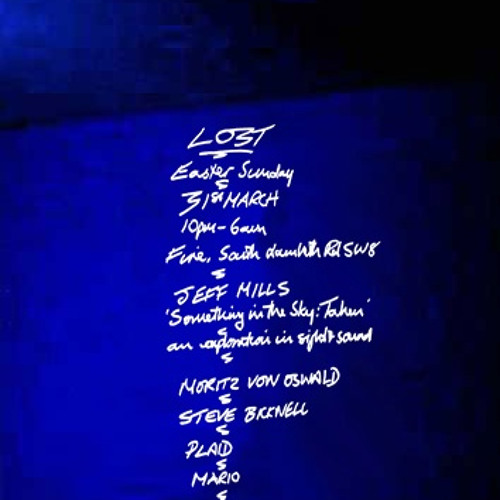 LOST
Easter Sunday
31st MARCH
10pm - 6am
Fire, South Lambeth Rd SW8
JEFF MILLS
'Something in the Sky: Taken'
an exploration in sight & sound
MORITZ VON OSWALD
STEVE BICKNELL
PLAID
MARIO